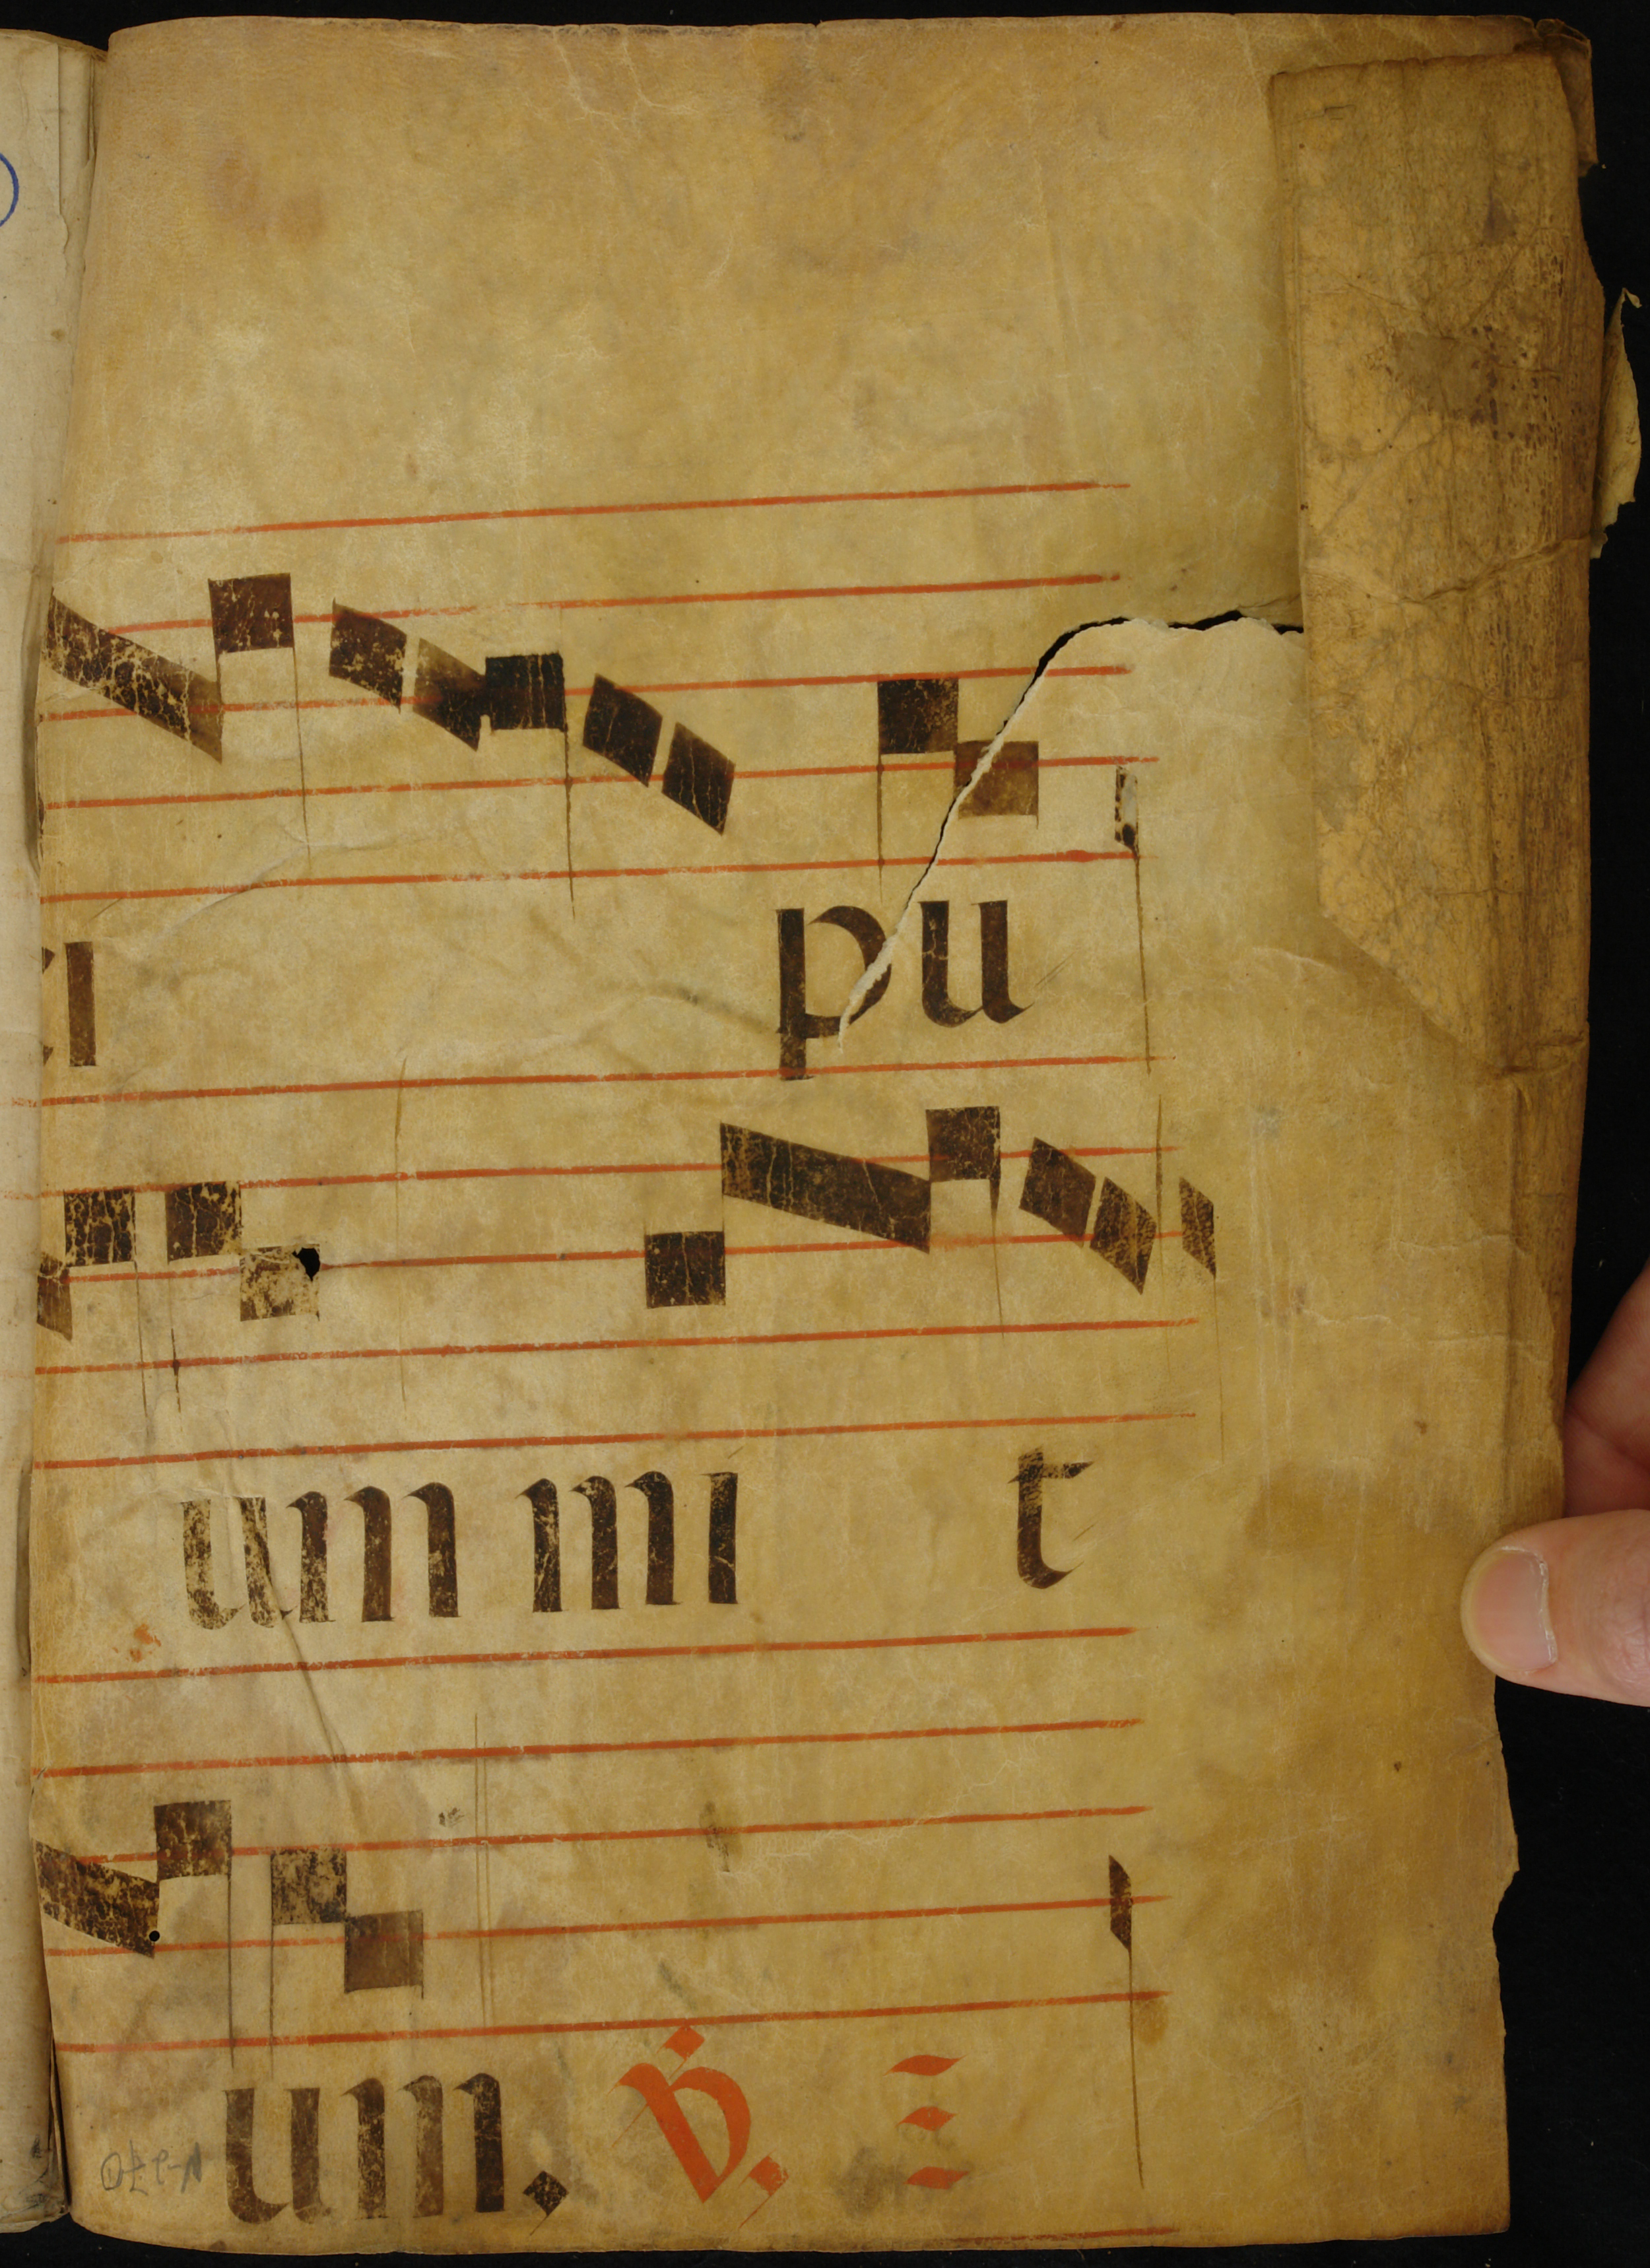 i pu
um mi t
um. V.